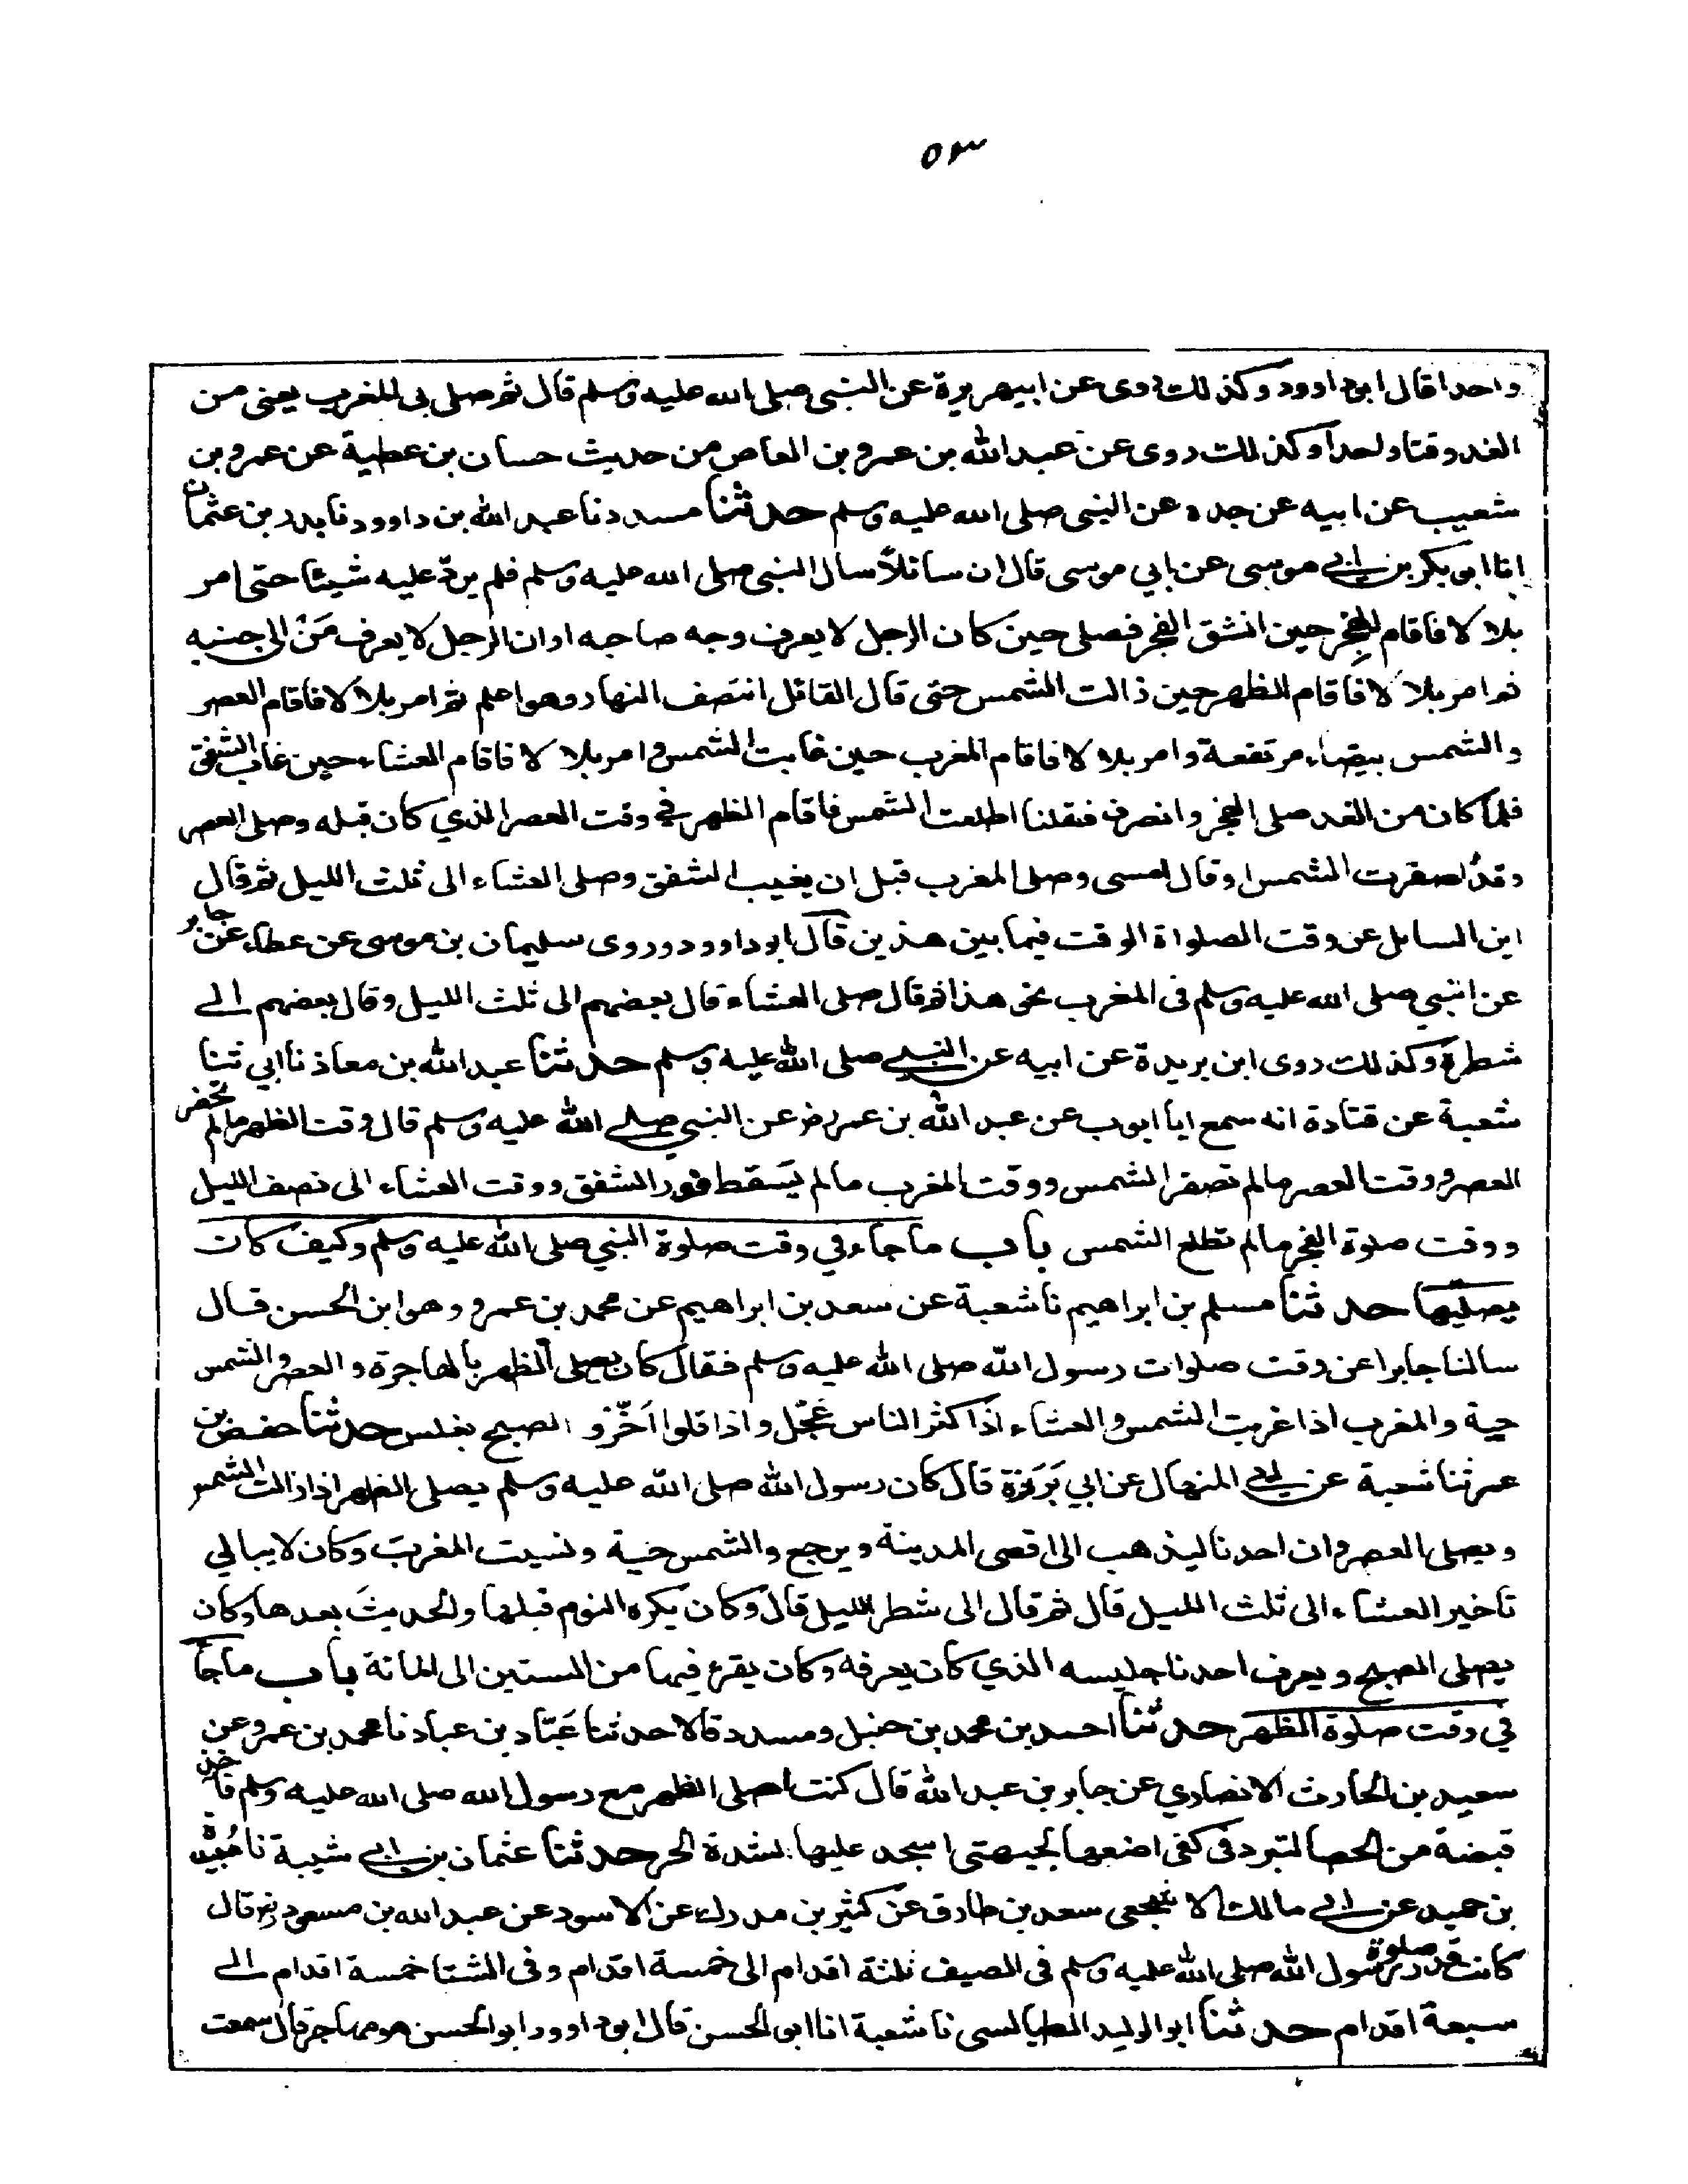 ٥٣
واحدا قال ابو داوود وكذلك روى عن ابي هريرة عن النبي صلى الله عليه وسلم قال ثم صلى بى المغرب يعنى من
الغد وقتا واحدا وكذلك روى عن عبد الله بن عمرو بن العاص من حديث حسان بن عطية عن عمرو بن
شعيب عن ابيه عن جده عن النبى صلى الله عليه وسلم حدثنا مسدد نا عبد الله بن داوود نا بدر بن عثمان
انا ابو بكر بن ابي موسى عن ابي موسى قال ان سائلاً سال النبى صلى الله عليه وسلم فلم يردّ عليه شيئا حتى امر
بلالا فاقام للفجر حين انشق الفجر فصلى حين كان الرجل لا يعرف وجه صاحبه او ان الرجل لا يعرف مَنْ الى جنبه
ثم امر بلالا فاقام الظهر حين زالت الشمس حتى قال القائل انتصف النهار وهو اعلم ثم امر بلالا فاقام العصر
والشمس بيضاء مرتفعة وامر بلالا فاقام المغرب حين غابت الشمس وامر بلالا فاقام العشاء حين غاب الشفق
فلما كان من الغد صلى الفجر وانصرف فقلنا اطلعت الشمس فاقام الظهر في وقت العصر الذي كان قبله وصلى العصر
وقد اصفرت الشمس او قال امسى وصلى المغرب قبل ان يغيب الشفق وصلى العشاء الى ثلث الليل ثم قال
اين السايل عن وقت الصلواة الوقت فيما بين هذين قال ابو داوود وروى سليمان بن موسى عن عطاء عن جابر
عن النبي صلى الله عليه وسلم فى المغرب نحو هذا ثم قال صلى العشاء قال بعضهم الى ثلث الليل وقال بعضهم الى
شطره وكذلك روى ابن بريدة عن ابيه عن النبي صلى الله عليه وسلم حدثنا عبد الله بن معاذ نا ابي ثنا
شعبة عن قتادة انه سمع ابا ايوب عن عبد الله بن عمرو رض عن النبي صلى الله عليه وسلم قال وقت الظهر ما لم تحضر
العصر ووقت العصر ما لم تصفر الشمس ووقت المغرب ما لم يَسقط فور الشفق ووقت العشاء الى نصف الليل
ووقت صلوة الفجر ما لم تطلع الشمس باب ما جاء في وقت صلوة النبي صلى الله عليه وسلم وكيف كان
يصليها حدثنا مسلم بن ابراهيم نا شعبة عن سعد بن ابراهيم عن محمد بن عمرو وهو ابن الحسن قال
سالنا جابرا عن وقت صلوات رسول الله صلى الله عليه وسلم فقال كان يصلى الظهر بالهاجرة والعصر والشمس
حية والمغرب اذا غربت الشمس والعشاء اذا كثر الناس عجّل واذا قلوا اَخّر والصبح بغلس حدثنا حفص بن
عمر ثنا شعبة عن ابي المنهال عن ابي بَرزة قال كان رسول الله صلى الله عليه وسلم يصلى الظهر اذا زالت الشمس
ويصلى العصر وان احدنا ليذهب الى اقصى المدينة ويرجع والشمس حية ونسيت المغربَ وكان لا يبالي
تاخير العشاء الى ثلث الليل قال ثم قال الى شطر الليل قال وكان يكره النوم قبلها والحديثَ بعدها وكان
يصلى الصبح ويعرف احدنا جليسه الذي كان يعرفه وكان يقرء فيها من الستين الى المائة باب ما جاء
في وقت صلوة الظهر حدثنا احمد بن محمد بن حنبل ومسدد قالا حدثنا عَبّاد بن عباد نا محمد بن عمرو عن
سعيد بن الحارث الانصاري عن جابر بن عبد الله قال كنت اصلى الظهر مع رسول الله صلى الله عليه وسلم فاخذ
قبضة من الحصا لتبرد فى كفى اضعها لجبهتى اسجد عليها لشدة الحر حدثنا عثمان بن ابي شيبة نا عُبيدة
بن حميد عن ابي مالك الاشجعى سعد بن طارق عن كثير بن مدرك عن الاسود عن عبد الله بن مسعود رض قال
كانت قدر صلوة رسول الله صلى الله عليه وسلم فى الصيف ثلثة اقدام الى خمسة اقدام وفى الشتا خمسة اقدام الى
سبعة اقدام حدثنا ابو الوليد الطيالسى نا شعبة انا ابو الحسن قال ابو داوود ابو الحسن هو مهاجر قال سمعت